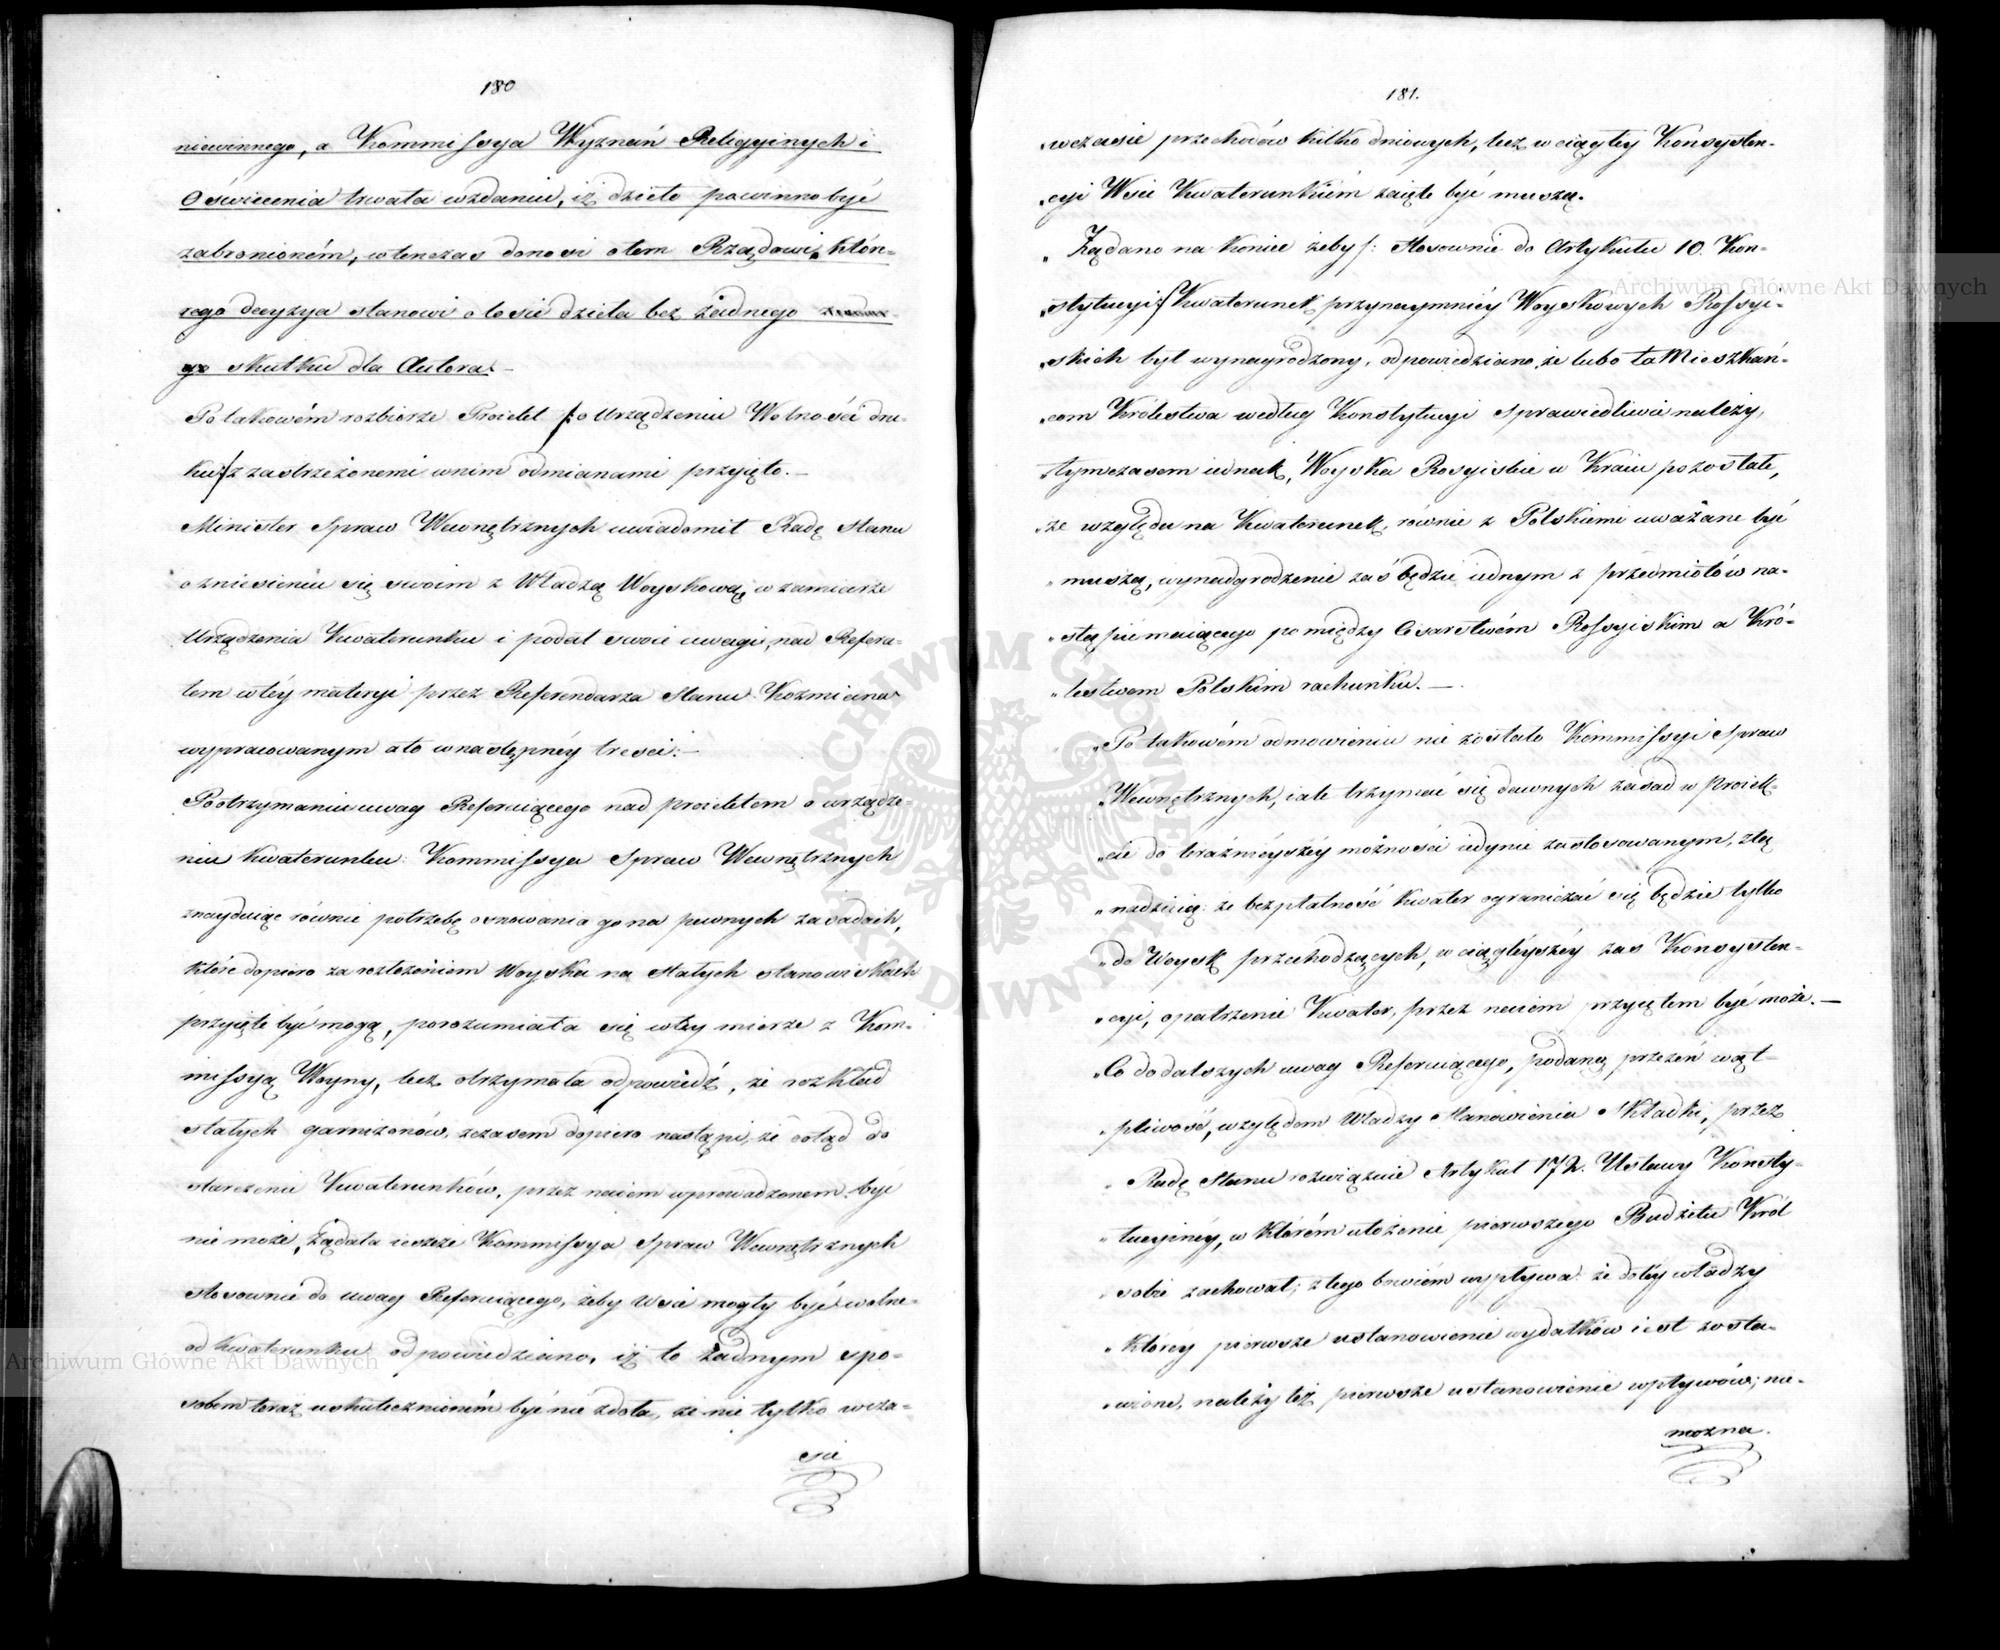 180
niewinnego, a Kommissya Wyznań Religyinych i
Oświecenia trwała w zdaniu, iż dzieło powinno być
zabronioném, wtenczas donosi o tem Rządowi, któ-
rego decyzya stanowi o losie dzieła bez żadnego
skutku dla Autora. —
Po takowém rozbiorze Proiekt /: o Urządzeniu Wolności dru-
ku :/ z zastrzeżonemi w nim odmianami przyięto. —
Minister Spraw Wewnętrznych uwiadomił Radę Stanu
o zniesieniu się swoim z Władzą Woyskową, w zamiarze
Urządzenia Kwaterunku i podał swoie uwagi, nad Refera-
tem w téy materyi przez Referendarza Stanu Kozmiana
wypracowanym a to w następnéy treści: —
Po otrzymaniu uwag Referuiącego nad proiektem o urządze-
niu Kwaterunku Kommissya Spraw Wewnętrznych
znayduiąc równie potrzebę osnowania go na pewnych zasadach,
które dopiero za rozłożeniem Woyska na stałych stanowiskach
przyięte być mogą, porozumiała się w téy mierze z Kom-
missyą Woyny, lecz otrzymała odpowiedź, że rozkład
stałych garnizonów, z czasem dopiero nastąpi, że dotąd do
starczenie Kwaterunków, przez naiem wprowadzonem być
nie może, Żądała ieszcze Kommissya Spraw Wewnętrznych
stosownie do uwag Referuiącego, żeby Wsie mogły być wolne
od Kwaterunku odpowiedziano, iż to żadnym spo-
sobem teraz uskutecznioném być nie zdoła, że nie tylko w cza-
sie
181.
„w czasie przechodów kilkodniowych, lecz w ciągłey Konsysten-
„cyi Wsie Kwaterunkiém zaięte być muszą.
„Żądano na koniec żeby /: stosownie do Artykułu 10. Kon-
„stytucyi :/ Kwaterunek przynaymniéy Woyskowych Rossyi-
„skich był wynagrodzony, odpowiedziano, że lubo to Mieszkań-
„com Królestwa według Konstytucyi sprawiedliwie należy,
„tymczasem iednak, Woyska Rosyiskie w Kraiu pozostałe,
„ze względu na Kwaterunek, równie z Polskiemi uważane być
„muszą, wynadgrodzenie zaś będzie iednym z przedmiotów na-
„stąpić maiącego pomiędzy Cesarstwém Rossyiskim a Kró-
„lestwem Polskim rachunku. —
„Po takowém odmowieniu nie zostało Kommissyi Spraw
„Wewnętrznych, iak trzymać się dawnych zasad w Proiek-
„cie do teraźnieyszéy możności iedynie zastosowanym, z tą
„nadzieią: że bezpłatność kwater ograniczać się będzie tylko
„do Woysk przechodzących, w ciągłéyszéy zas Konsysten-
„cyi, opatrzenie Kwater, przez naiem przyiętem być może. —
„Co do dalszych uwag Referuiącego, podaną przezeń wąt-
„pliwość, względem Władzy stanowienia Składki, przez
„Radę Stanu rozwiązuie Artykuł 172. Ustawy Konsty-
„tucyinéy, w którém ułożenie pierwszego Budżetu Król
„sobie zachował; z tego bowiém wypływa: że do téy władzy
„któréy pierwsze ustanowienie wydatków iest zosta-
„wione, należy też pierwsze ustanowienie wpływów; nie-
można.
Archiwum Główne Akt Dawnych
Archiwum Główne Akt Dawnych
ARCHIWUM GŁÓWNE AKT DAWNYCH